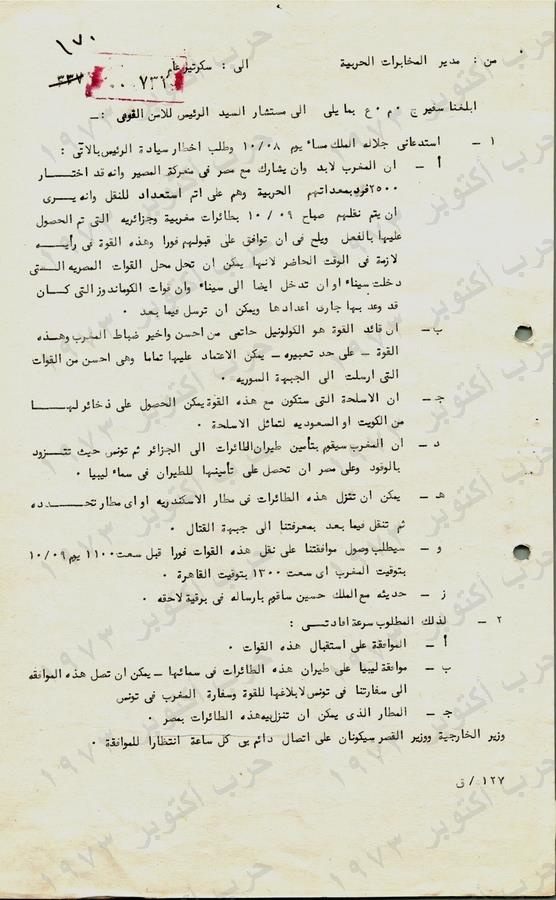 ١٧٠
من : مدير المخابرات الحربية
الى : سكرتير عام
٣٣٧
٠٠٧٣١
ابلغنا سفير ج ٠ م ٠ ع بما يلى الى مستشار السيد الرئيس للامن القومى :ـ
١ ـ استدعانى جلاله الملك مساء يوم ١٠/٠٨ وطلب اخطار سيادة الرئيس بالاتى :
أ ـ ان المغرب لابد وان يشارك مع مصر فى معركة المصير وانه قد اختـــار
٢٥٠٠ فرد بمعداتهم الحربية وهم على اتم استعداد للنقل وانه يــرى
ان يتم نقلهم صباح ١٠/٠٩ بطائرات مغربية وجزائريه التى تم الحصول
عليها بالفعل ويلح فى ان توافق على قبولهم فورا وهذه القوة فى رأيـــه
لازمة فى الوقت الحاضر لانها يمكن ان تحل محل القوات المصريه الــتى
دخلت سيناء او ان تدخل ايضا الى سيناء وان قوات الكوماندوز التى كــان
قد وعد بها جارى اعدادها ويمكن ان ترسل فيما بعد ٠
ب ـ ان قائد القوة هو الكولونيل حاتمى من احسن واخير ضباط المغرب وهــذه
القوة ـ على حد تعبيره ـ يمكن الاعتماد عليها تماما وهى احسن من القوات
التى ارسلت الى الجبهة السوريه ٠
جـ ـ ان الاسلحة التى ستكون مع هذه القوة يمكن الحصول على ذخائر لهـــا
من الكويت او السعوديه لتماثل الاسلحة ٠
د ـ ان المغرب سيقوم بتأمين طيران الطائرات الى الجزائر ثم تونس حيث تتـــزود
بالوقود وعلى مصر ان تحصل على تأمينها للطيران فى سماء ليبيا ٠
هـ ـ يمكن ان تنزل هذه الطائرات فى مطار الاسكندريه او اى مطار تحــــدده
ثم تنقل فيما بعد بمعرفتنا الى جبهة القتال ٠
و ـ سيطلب وصول موافقتنا على نقل هذه القوات فورا قبل سعت ١١٠٠ يوم ١٠/٠٩
بتوقيت المغرب اى سعت ١٣٠٠ بتوقيت القاهرة ٠
ز ـ حديثه مع الملك حسين ساقوم بارساله فى برقية لاحقه ٠
٢ ـ لذلك المطلوب سرعة افادتــى :
أ ـ الموافقة على استقبال هذه القوات ٠
ب ـ موافقة ليبيا على طيران هذه الطائرات فى سمائها ـ يمكن ان تصل هذه الموافقه
الى سفارتنا فى تونس لابلاغها للقوة وسفارة المغرب فى تونس
جـ ـ المطار الذى يمكن ان تنزل بيه هذه الطائرات بمصر ٠
وزير الخارجية ووزير القصر سيكونان على اتصال دائم بى كل ساعة انتظارا للموافقة ٠
١٢٧ / ق
حرب أكتوبر ١٩٧٣